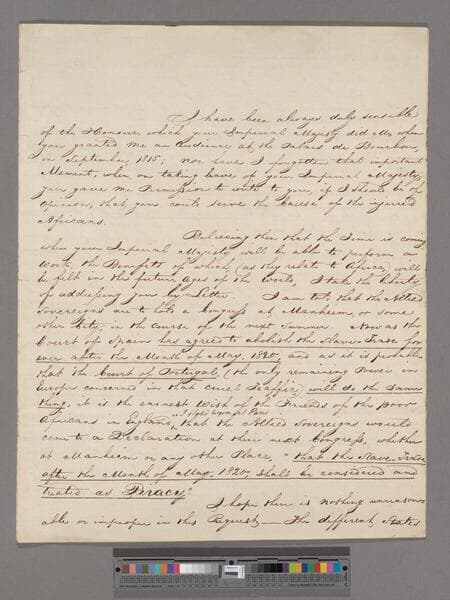 I have been always duly sensible
of the Honour, which your Imperial Majesty did Me, when
you granted me an Audience at the Palais de Bourbon,
in September 1815; nor have I forgotten that important
Moment, when, on taking leave of your Imperial Majesty,
you gave me Permission to write to you, if I should be of
Opinion, that you could serve the Cause of the injured
Africans.
Believing then that the Time is coming
when your Imperial Majesty will be able to perform a
Work, the Benefits of which (as they relate to Africa) will
be felt in the future Ages of the World, I take the Liberty
of addressing you by Letter. I am told, that the Allied
Sovereigns are to hold a Congress at Manheim, or some
other City, in the Course of the next Summer. Now as the
Court of Spain has agreed to abolish the Slave-Trade for
ever after the Month of May 1820, and as it is probable
that the Court of Portugal, (the only remaining Power in
Europe concerned in that cruel Traffic) will do the same
thing, it is the earnest Wish of the Friends of the poor
Africans in England, that the Allied Sovereigns would
come to a Declaration at their next Congress, whether
at Manheim or any other Place, "that the Slave Trade
after the Month of May 1820, shall be considered and
treated as Piracy."
I hope there is nothing unreason-
able or improper in this Request — The different States